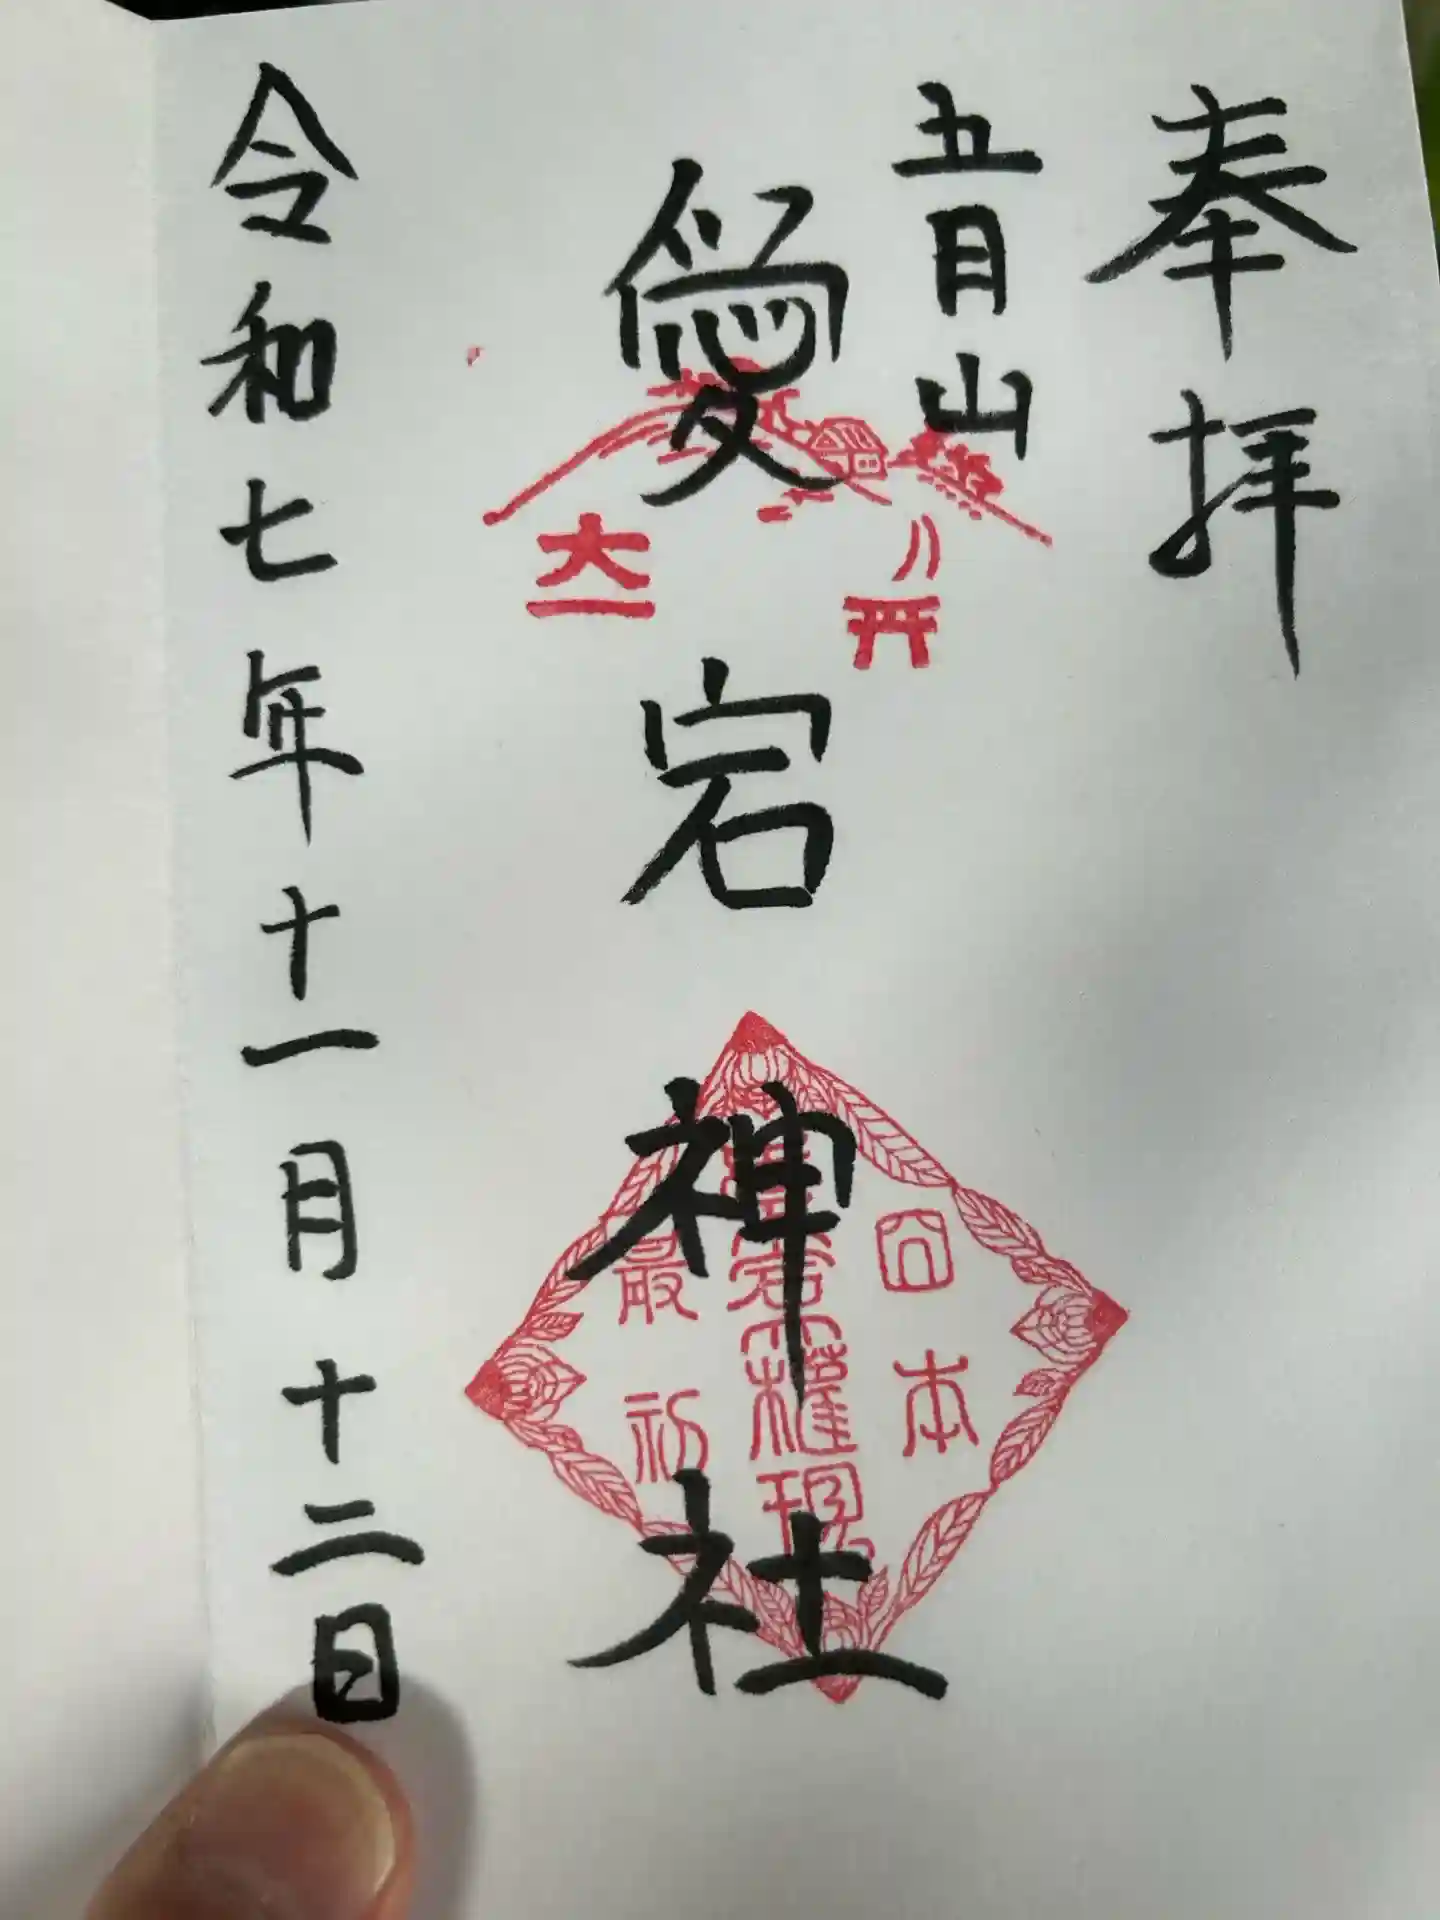 奉拝
五月山
愛宕神社
大一
日本
愛宕権現
最初
令和七年十一月十二日